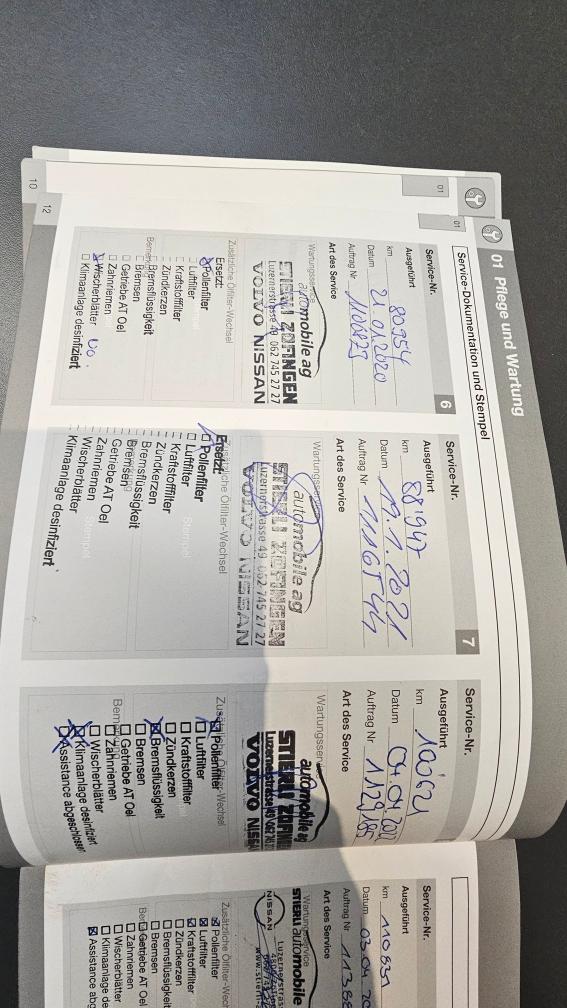 01 Pflege und Wartung
Service-Dokumentation und Stempel
01
01
Service-Nr.
6
Ausgeführt
km 80954
Datum 21.01.2020
Auftrag Nr
Art des Service
Wartungsservice
automobile ag
STIERLI ZOFINGEN
Luzernerstrasse 49 062 745 27 27
VOLVO NISSAN
Zusätzliche Ölfilter-Wechsel
Ersetzt:
Pollenfilter
Luftfilter
Kraftstofffilter
Zündkerzen
Bremsflüssigkeit
Bremsen
Getriebe AT Oel
Zahnriemen
Wischerblätter
Klimaanlage desinfiziert
Service-Nr.
7
Ausgeführt
km 88'947
Datum 19.1.2021
Auftrag Nr 1116544
Art des Service
Wartungsservice
automobile ag
STIERLI ZOFINGEN
Luzernerstrasse 49 062 745 27 27
VOLVO NISSAN
Zusätzliche Ölfilter-Wechsel
Ersetzt:
Pollenfilter
Luftfilter
Kraftstofffilter
Zündkerzen
Bremsflüssigkeit
Bremsen
Getriebe AT Oel
Zahnriemen
Wischerblätter
Klimaanlage desinfiziert
Service-Nr.
Ausgeführt
km 100'621
Datum 04.04.2022
Auftrag Nr 1129185
Art des Service
Wartungsservice
automobile ag
STIERLI
VOLVO
Zusätzliche Ölfilter-Wechsel
Pollenfilter
Luftfilter
Kraftstofffilter
Zündkerzen
Bremsflüssigkeit
Bremsen
Getriebe AT Oel
Zahnriemen
Wischerblätter
Klimaanlage desinfiziert
Assistance abgeschlossen
Service-Nr.
Ausgeführt
km 110831
Datum
Auftrag Nr
Art des Service
Wartungsservice
STIERLI automobile
NISSAN
Pollenfilter
Luftfilter
Kraftstofffilter
Zündkerzen
Bremsflüssigkeit
Bremsen
Getriebe AT Oel
Zahnriemen
Wischerblätter
Klimaanlage
Assistance
10
12